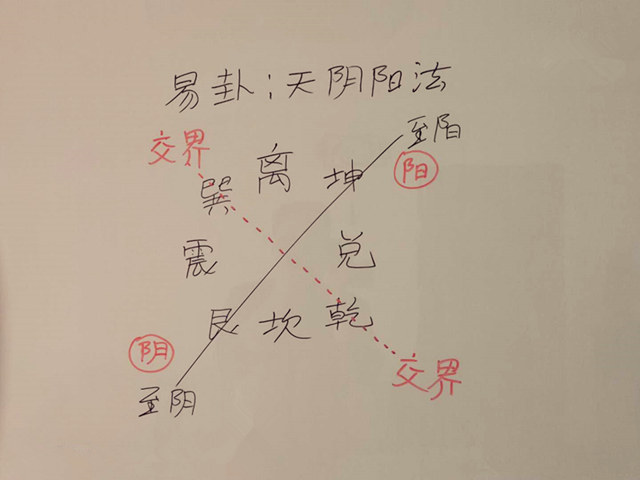 易卦;天阴阳法
至阳
交界
阳
离
坤
巽
震
兑
艮
坎
乾
阴
交界
至阴